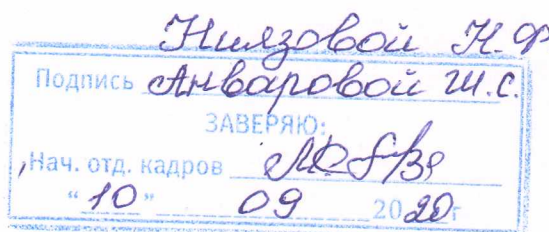 Ниязовой Н.Ф
Подпись Анваровой Ш.С.
ЗАВЕРЯЮ:
Нач. отд. кадров
"10" 09 2020г